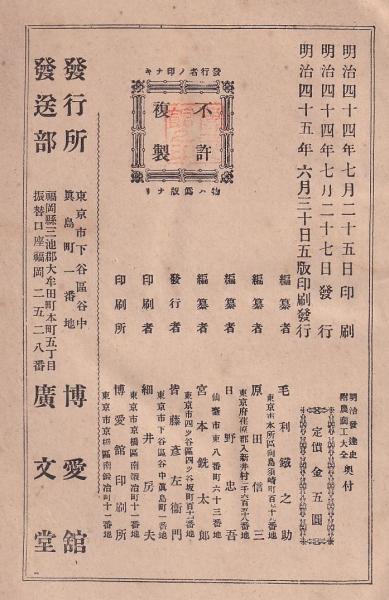 明治四十四年七月二十五日印刷
明治四十四年七月二十七日發行
明治四十五年六月三十日五版印刷發行
明治發達史
附農商工大全
奥付
定價金五圓
發行者ノ印ナキ
不許
複製
物ハ僞版ナリ
編纂者
毛利鐵之助
東京市本所區向島須崎町百七十八番地
編纂者
原田信三
東京府荏原郡入新井村二千六百五十八番地
編纂者
日野忠吾
仙臺市東八番町六十三番地
編纂者
宮本銑太郎
東京市四ツ谷區四ツ谷坂町百十番地
發行者
皆藤彦左衞門
東京市下谷區谷中眞島町一番地
印刷者
細井房夫
東京市京橋區南鍛冶町十一番地
印刷所
博愛館印刷所
東京市京橋區南鍛冶町十一番地
發行所
東京市下谷區谷中
眞島町一番地
博愛館
發送部
福岡縣三池郡大牟田町本町五丁目
振替口座福岡二五二八番
廣文堂